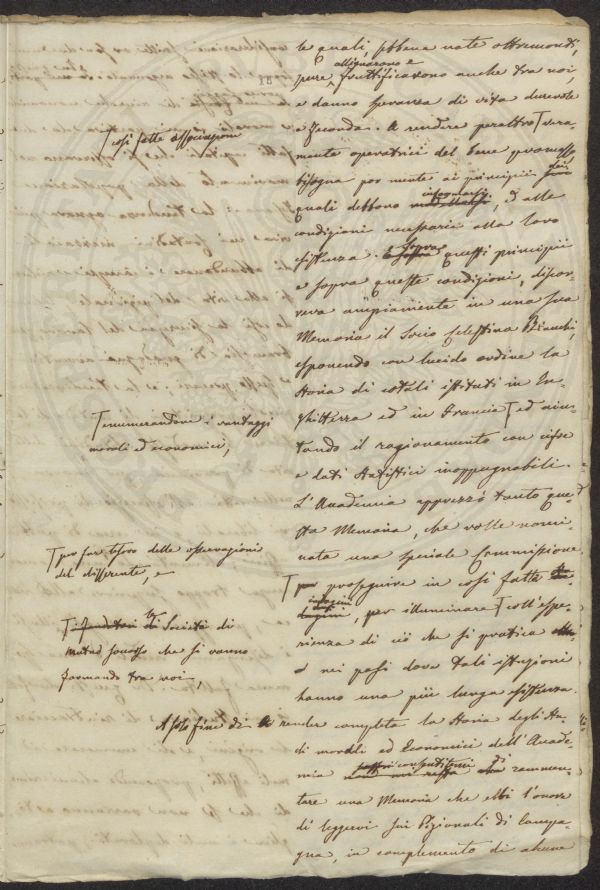 le quali, sebbene nate oltremonti,
allignarono e
pure fruttificarono anche tra noi,
e danno speranza di vita durevole
e feconda. A rendere peraltro vera-
così fatte associazioni
mente operatrici del bene promesso,
bisogna por mente ai principii
quali debbono informarsi, e alle
condizioni necessarie alla loro
esistenza. Sopra questi principii
e sopra queste condizioni, discor-
reva ampiamente in una sua
Memoria il Socio Celestino Bianchi,
esponendo con lucido ordine la
storia di cotali istituti in In-
ghilterra ed in Francia ed aiu-
enumerandone i vantaggi
morali ed economici,
tando il ragionamento con cifre
e dati statistici inoppugnabili.
L'Accademia apprezzò tanto que-
sta Memoria, che volle nomi-
nata una speciale Commissione
per far tesoro delle osservazioni
del disserente, e
proseguire in così fatte
indagini, per illuminare coll'espe-
i fondatori Società di
mutuo soccorso che si vanno
formando tra noi,
rienza di ciò che si pratica
nei paesi dove tali istituzioni
hanno una più lunga esistenza.
A solo fine di render completa la storia degli stu-
di morali ed Economici dell'Accade-
mia rammen-
tare una Memoria che ebbi l'onore
di leggervi sui Pigionali di Campa-
gna, in complemento di alcune